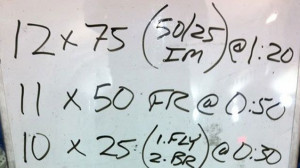 12 x 75 (50/25 IM) @ 1:20
11 x 50 FR @ 0:50
10 x 25 (1.FLY 2.BR) @ 0:30